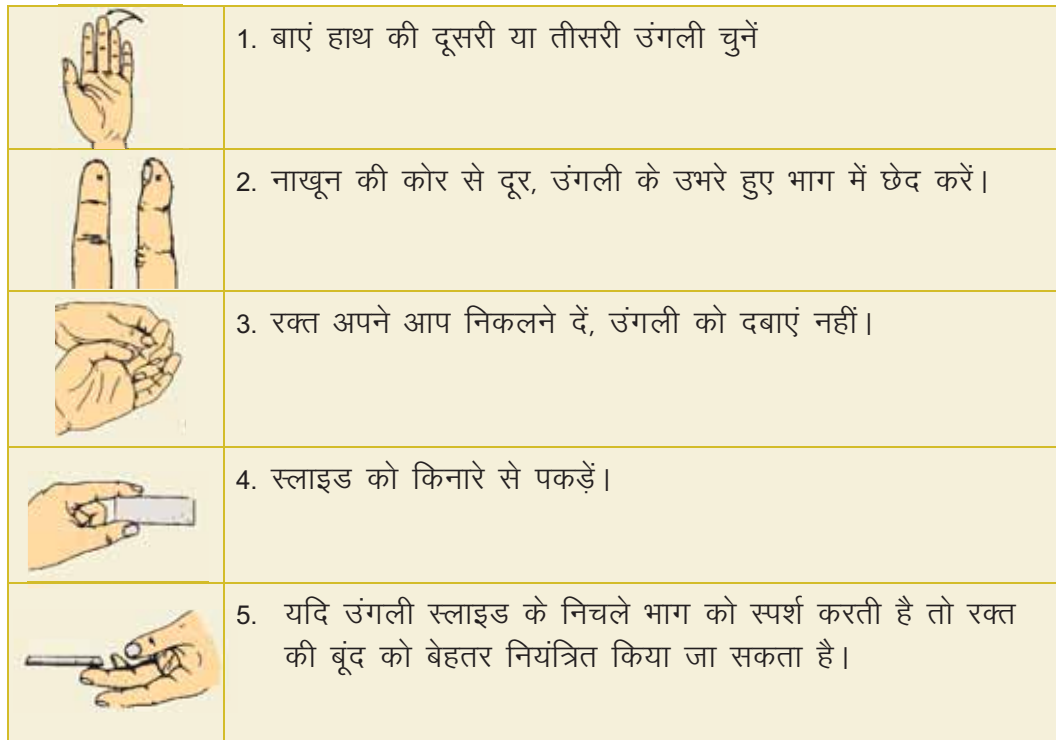 1. बाएं हाथ की दूसरी या तीसरी उंगली चुनें
2. नाखून की कोर से दूर, उंगली के उभरे हुए भाग में छेद करें।
3. रक्त अपने आप निकलने दें, उंगली को दबाएं नहीं।
4. स्लाइड को किनारे से पकड़ें।
5. यदि उंगली स्लाइड के निचले भाग को स्पर्श करती है तो रक्त
की बूंद को बेहतर नियंत्रित किया जा सकता है।